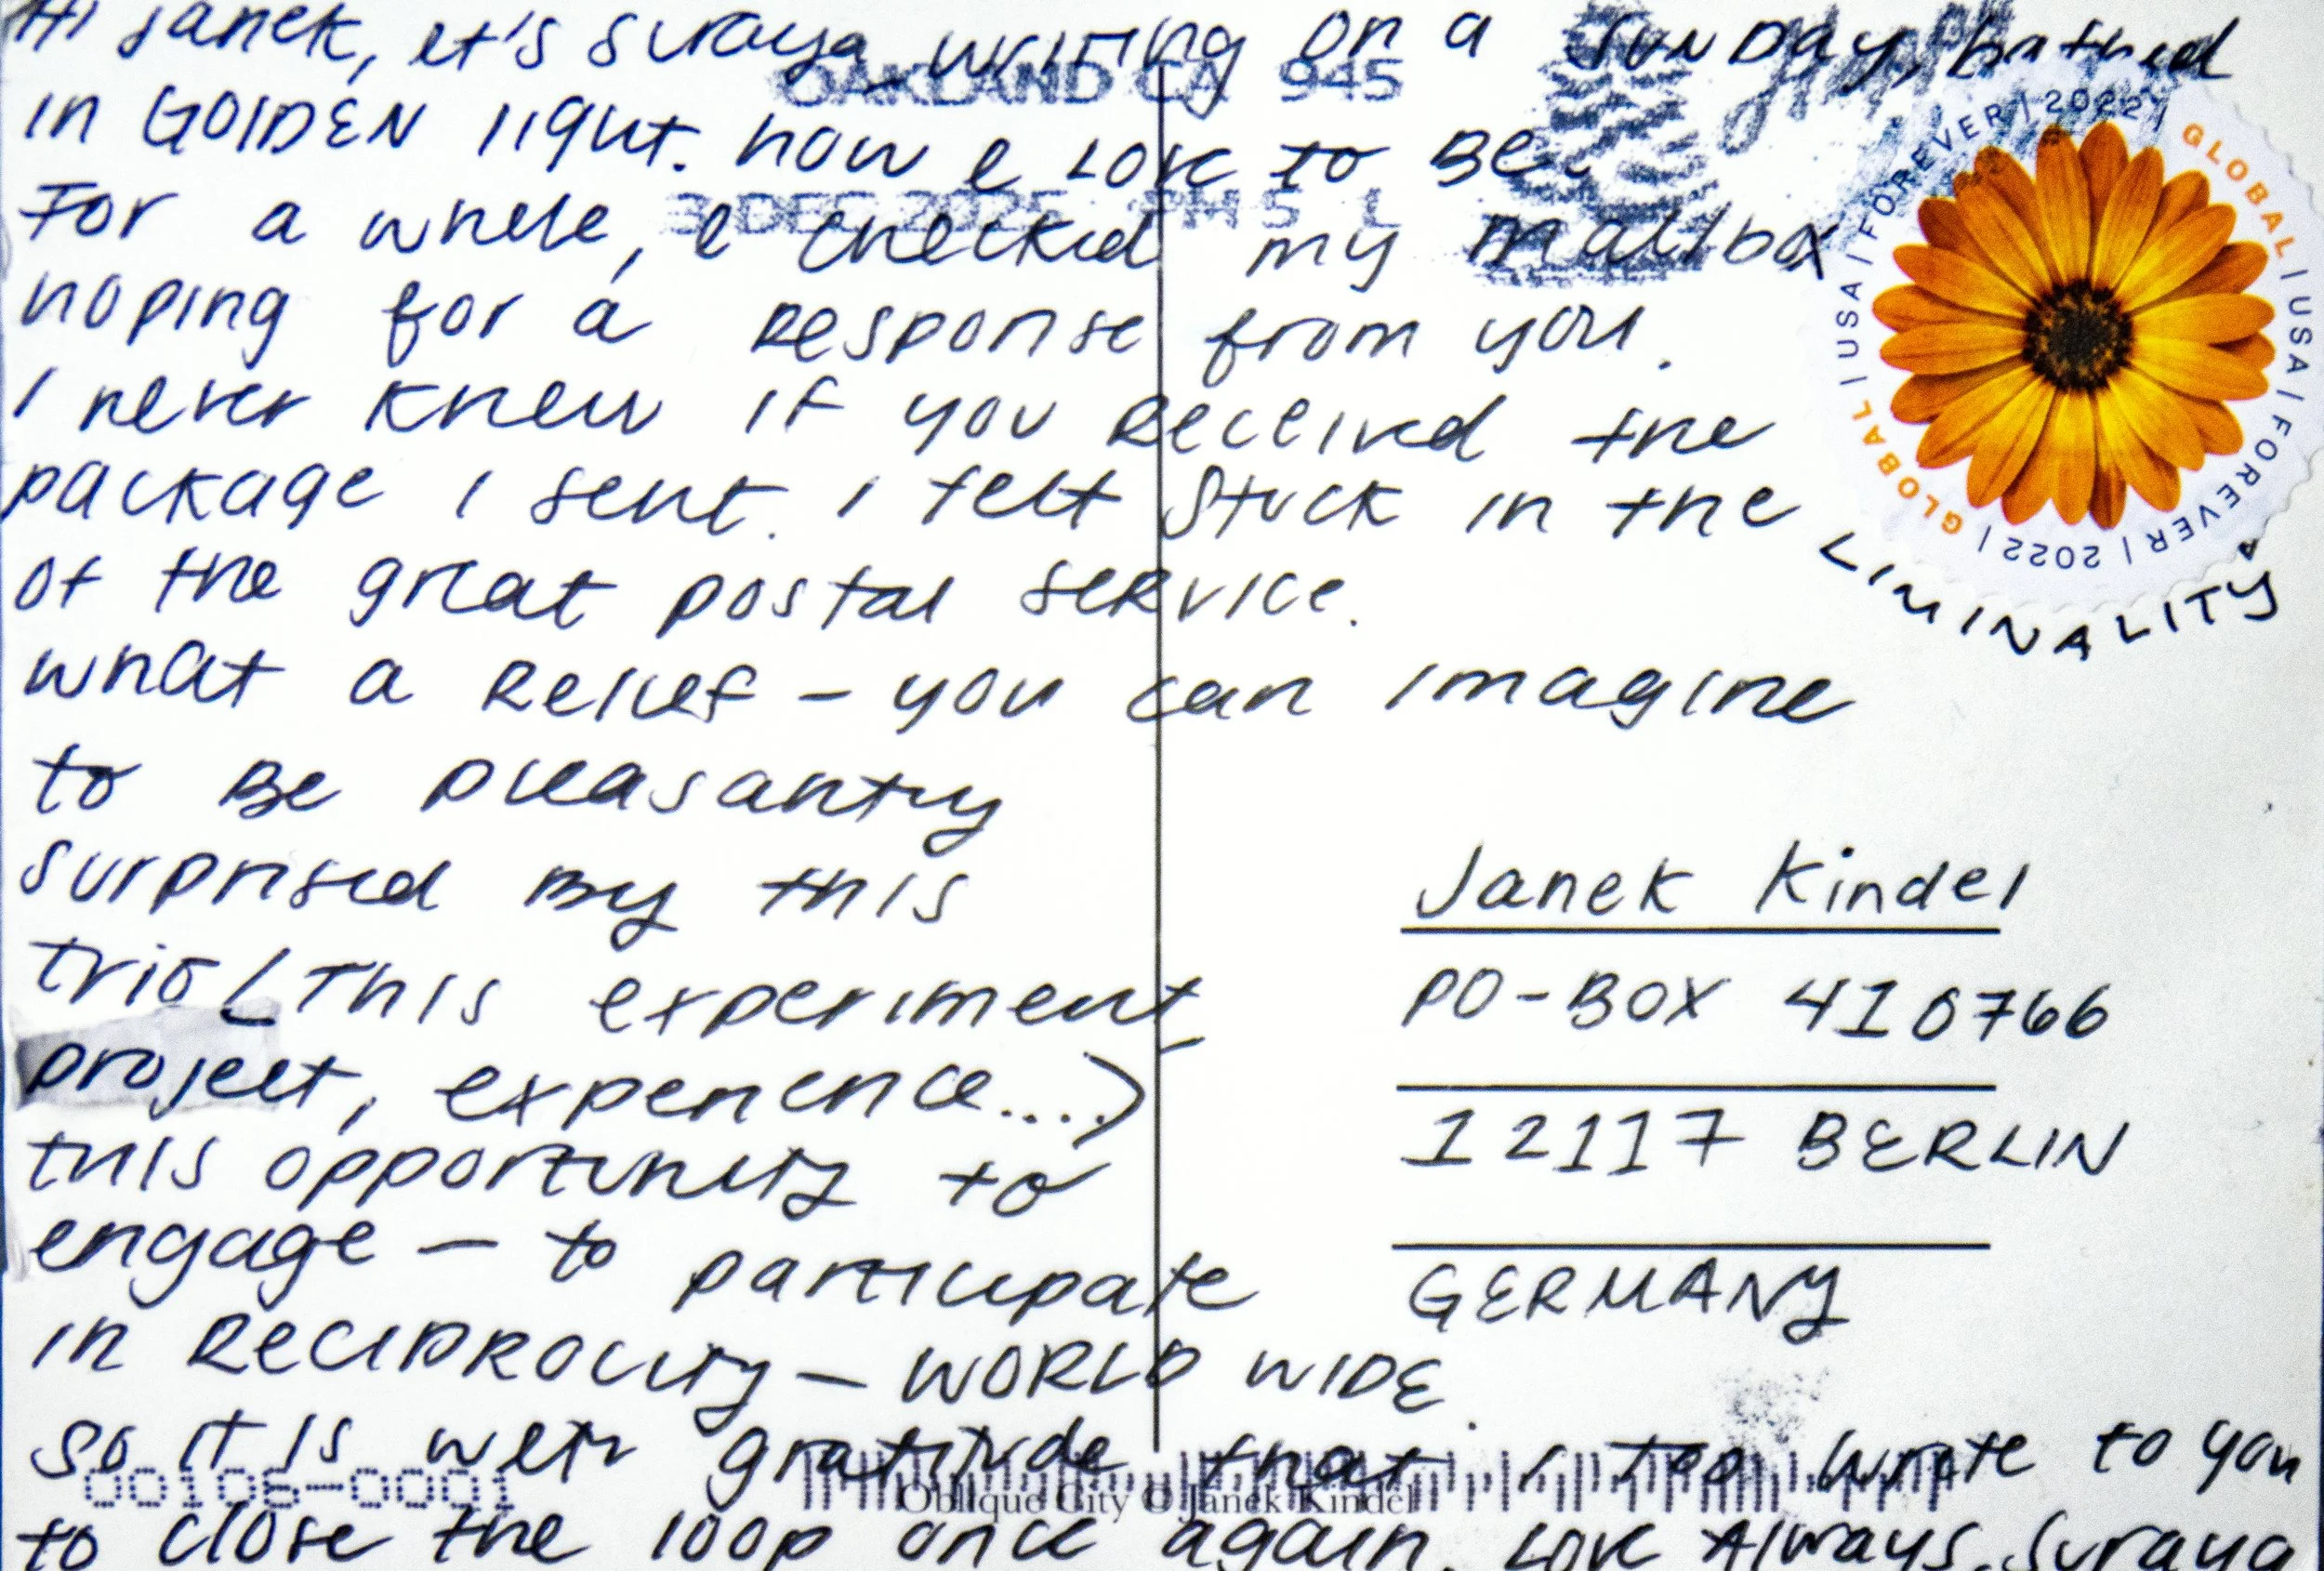 Hi Janek, it's Suraya writing on a SUNDAY, bathed
OAKLAND CA 945
in GOLDEN light. how I LOVE to BE.
3 DEC 2025 PM 5 L
For a while, I checked my mailbox
hoping for a Response from you.
I never knew if you Received the
package I sent. I felt stuck in the
LIMINALITY
of the great postal service.
what a Relief – you can imagine
to Be pleasantly
surprised by this
trio (This experiment,
project, experience....)
this opportunity to
engage – to participate
in RECIPROCITY – WORLD WIDE.
So it is with gratitude that I too write to you
to close the loop once again. Love Always, Suraya
GLOBAL | USA | FOREVER | 2022 | GLOBAL | USA | FOREVER | 2022 |
Janek Kindel
PO-BOX 410766
12117 BERLIN
GERMANY
00106-0001
Oblique City © Janek Kindel